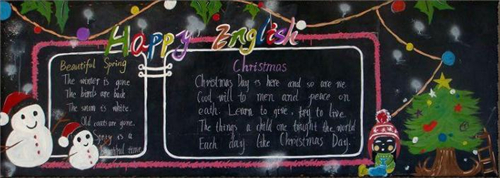 Happy English
Beautiful Spring
The winter is gone
The birds are back
The snow is white.
Old coats are gone.
Spring is a
beautiful time
Christmas
Christmas Day is here and so are we
Good will to men and peace on
earth. Learn to give, try to love
The things a child one taught the world
Each day like Christmas Day.